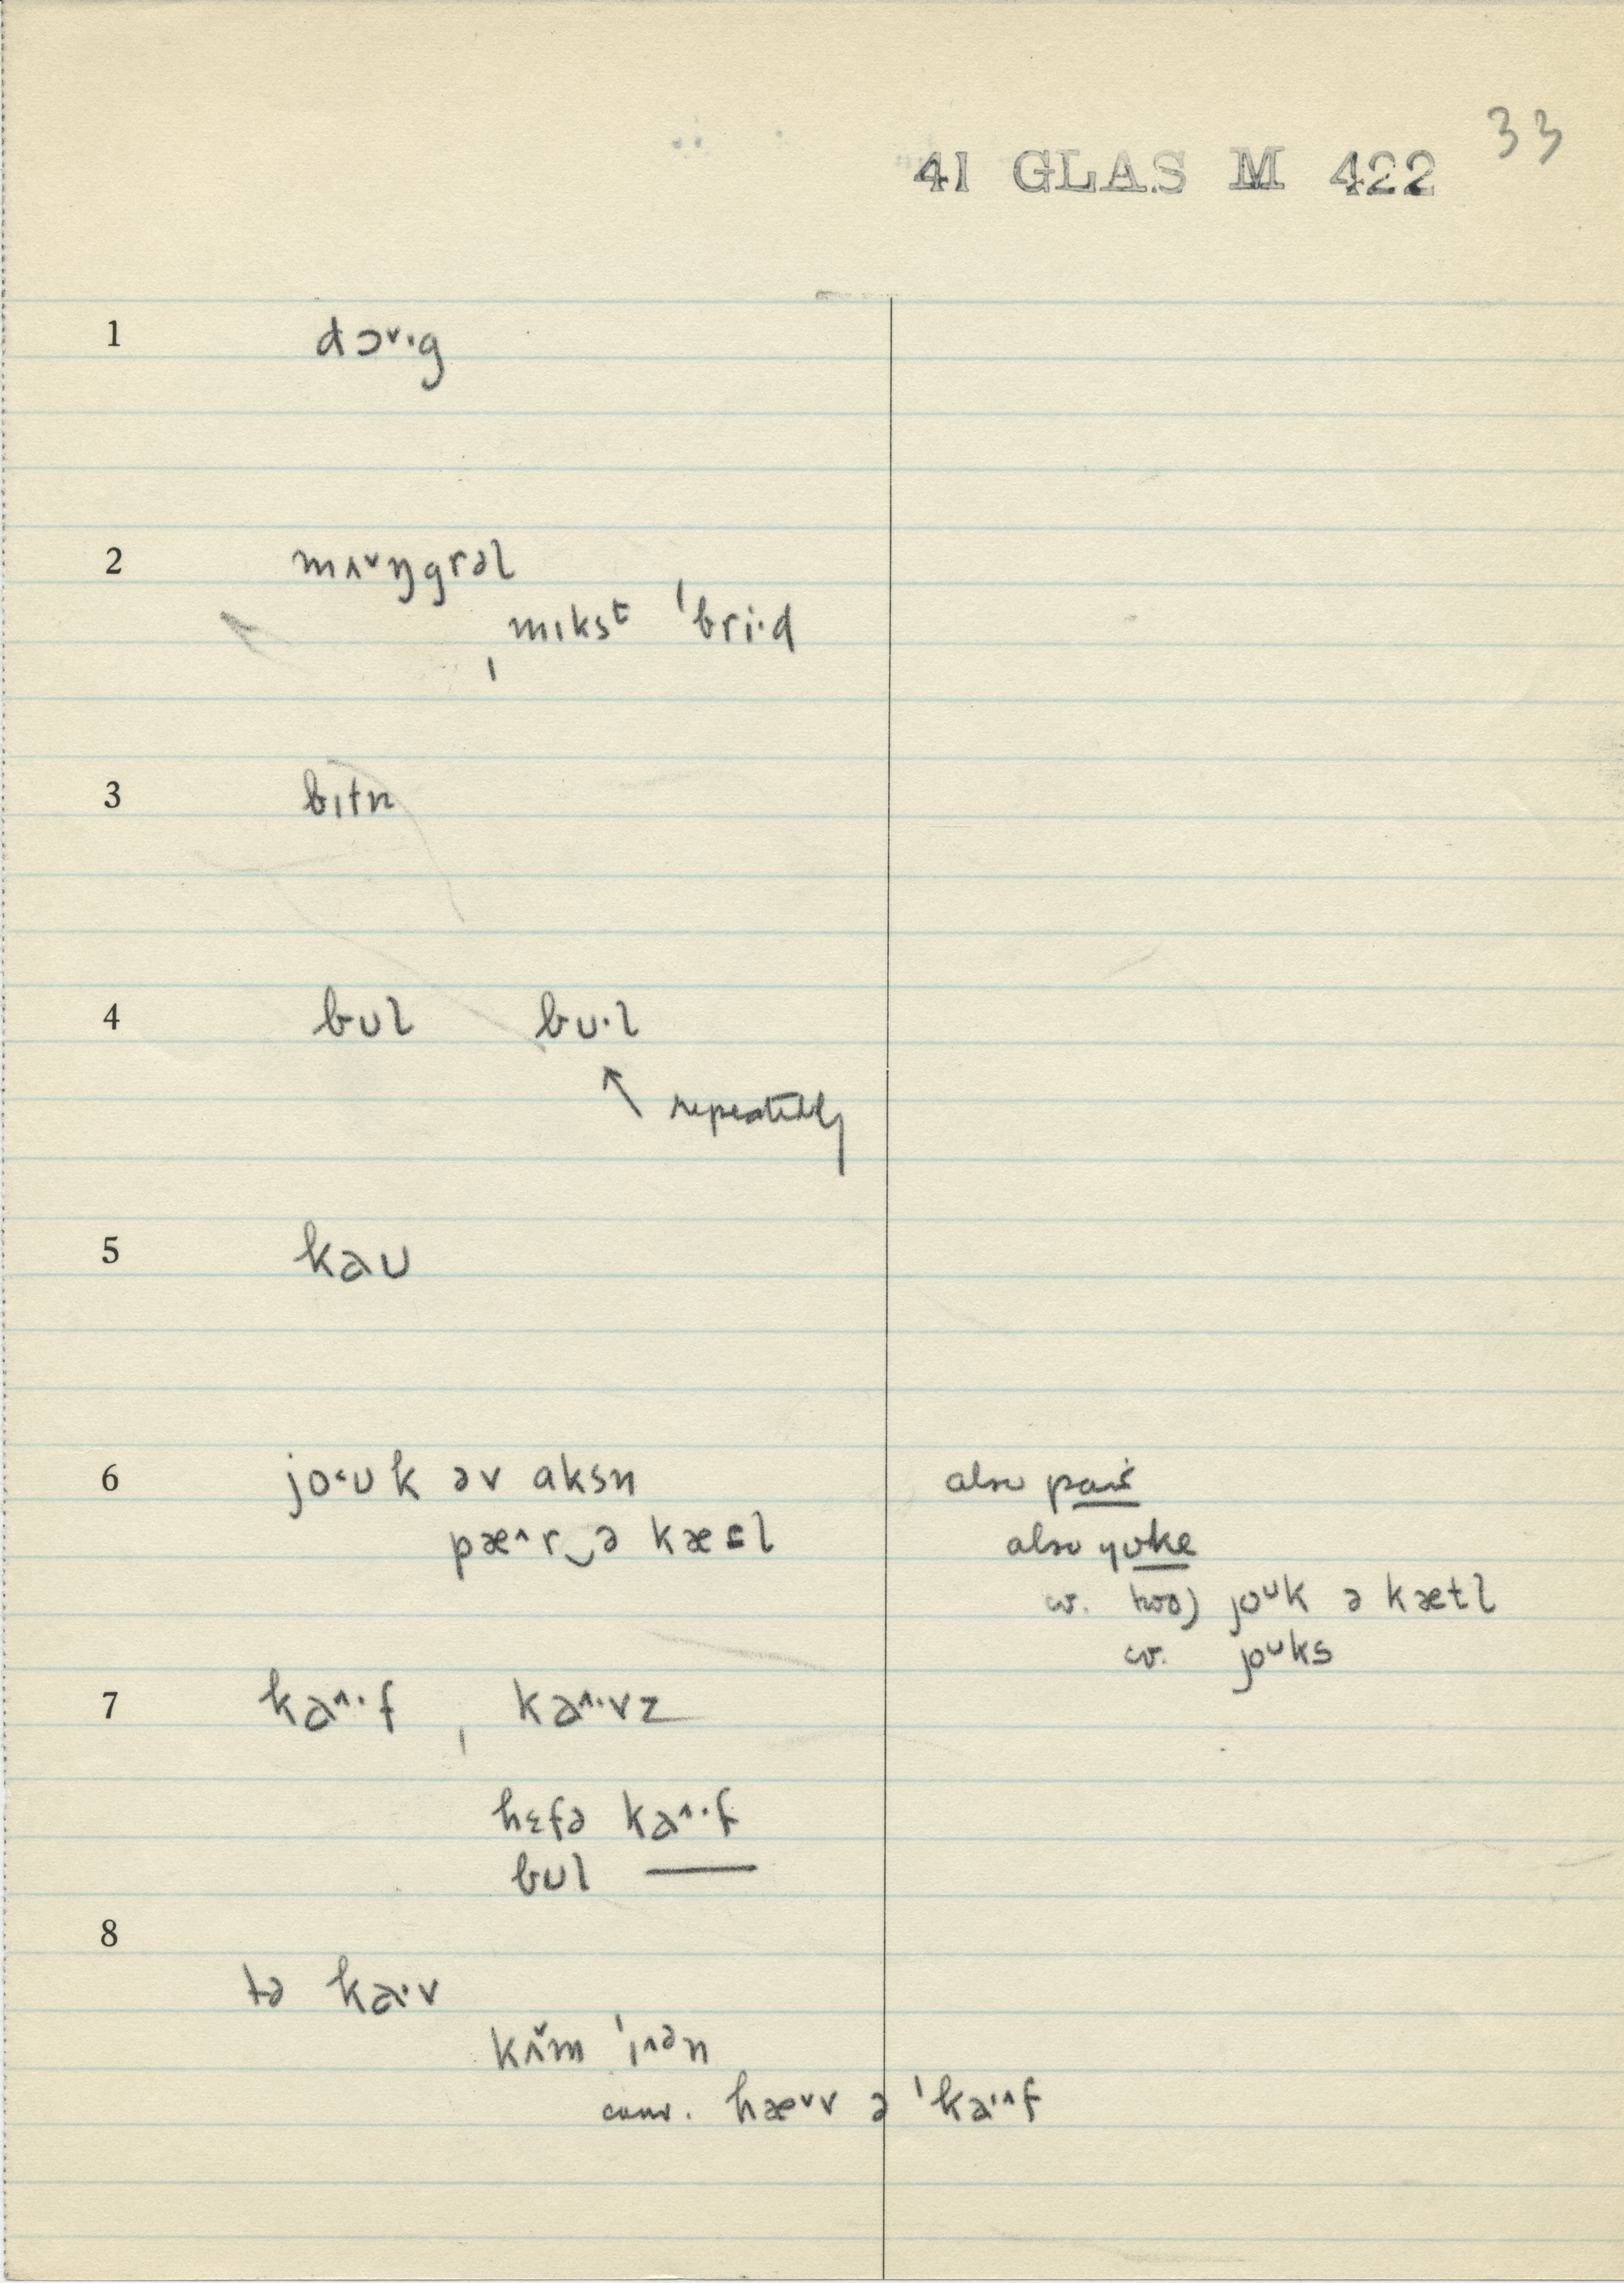 33
41 GLAS M 422
1 dɔ˅·g
2 mʌ˅ŋgrəl
ˌmɪkst ˈbri·d
3 bɪtn
4 bʊl bʊ·l
↖ repeatedly
5 kaʊ
6 jo˂ʊk əv aksn
pæ˄r‿ə kæt̬l
also pair
also yoke
cv. two) joᶷk ə kætl
cv. joᶷks
7 ka˄·f , ka˄·vz
hɛfə ka˄·f
bʊl ———
8
tə ka·v
kʌ̌m ˈɪ˄ən
conv. hæ˅v ə ˈka·˄f